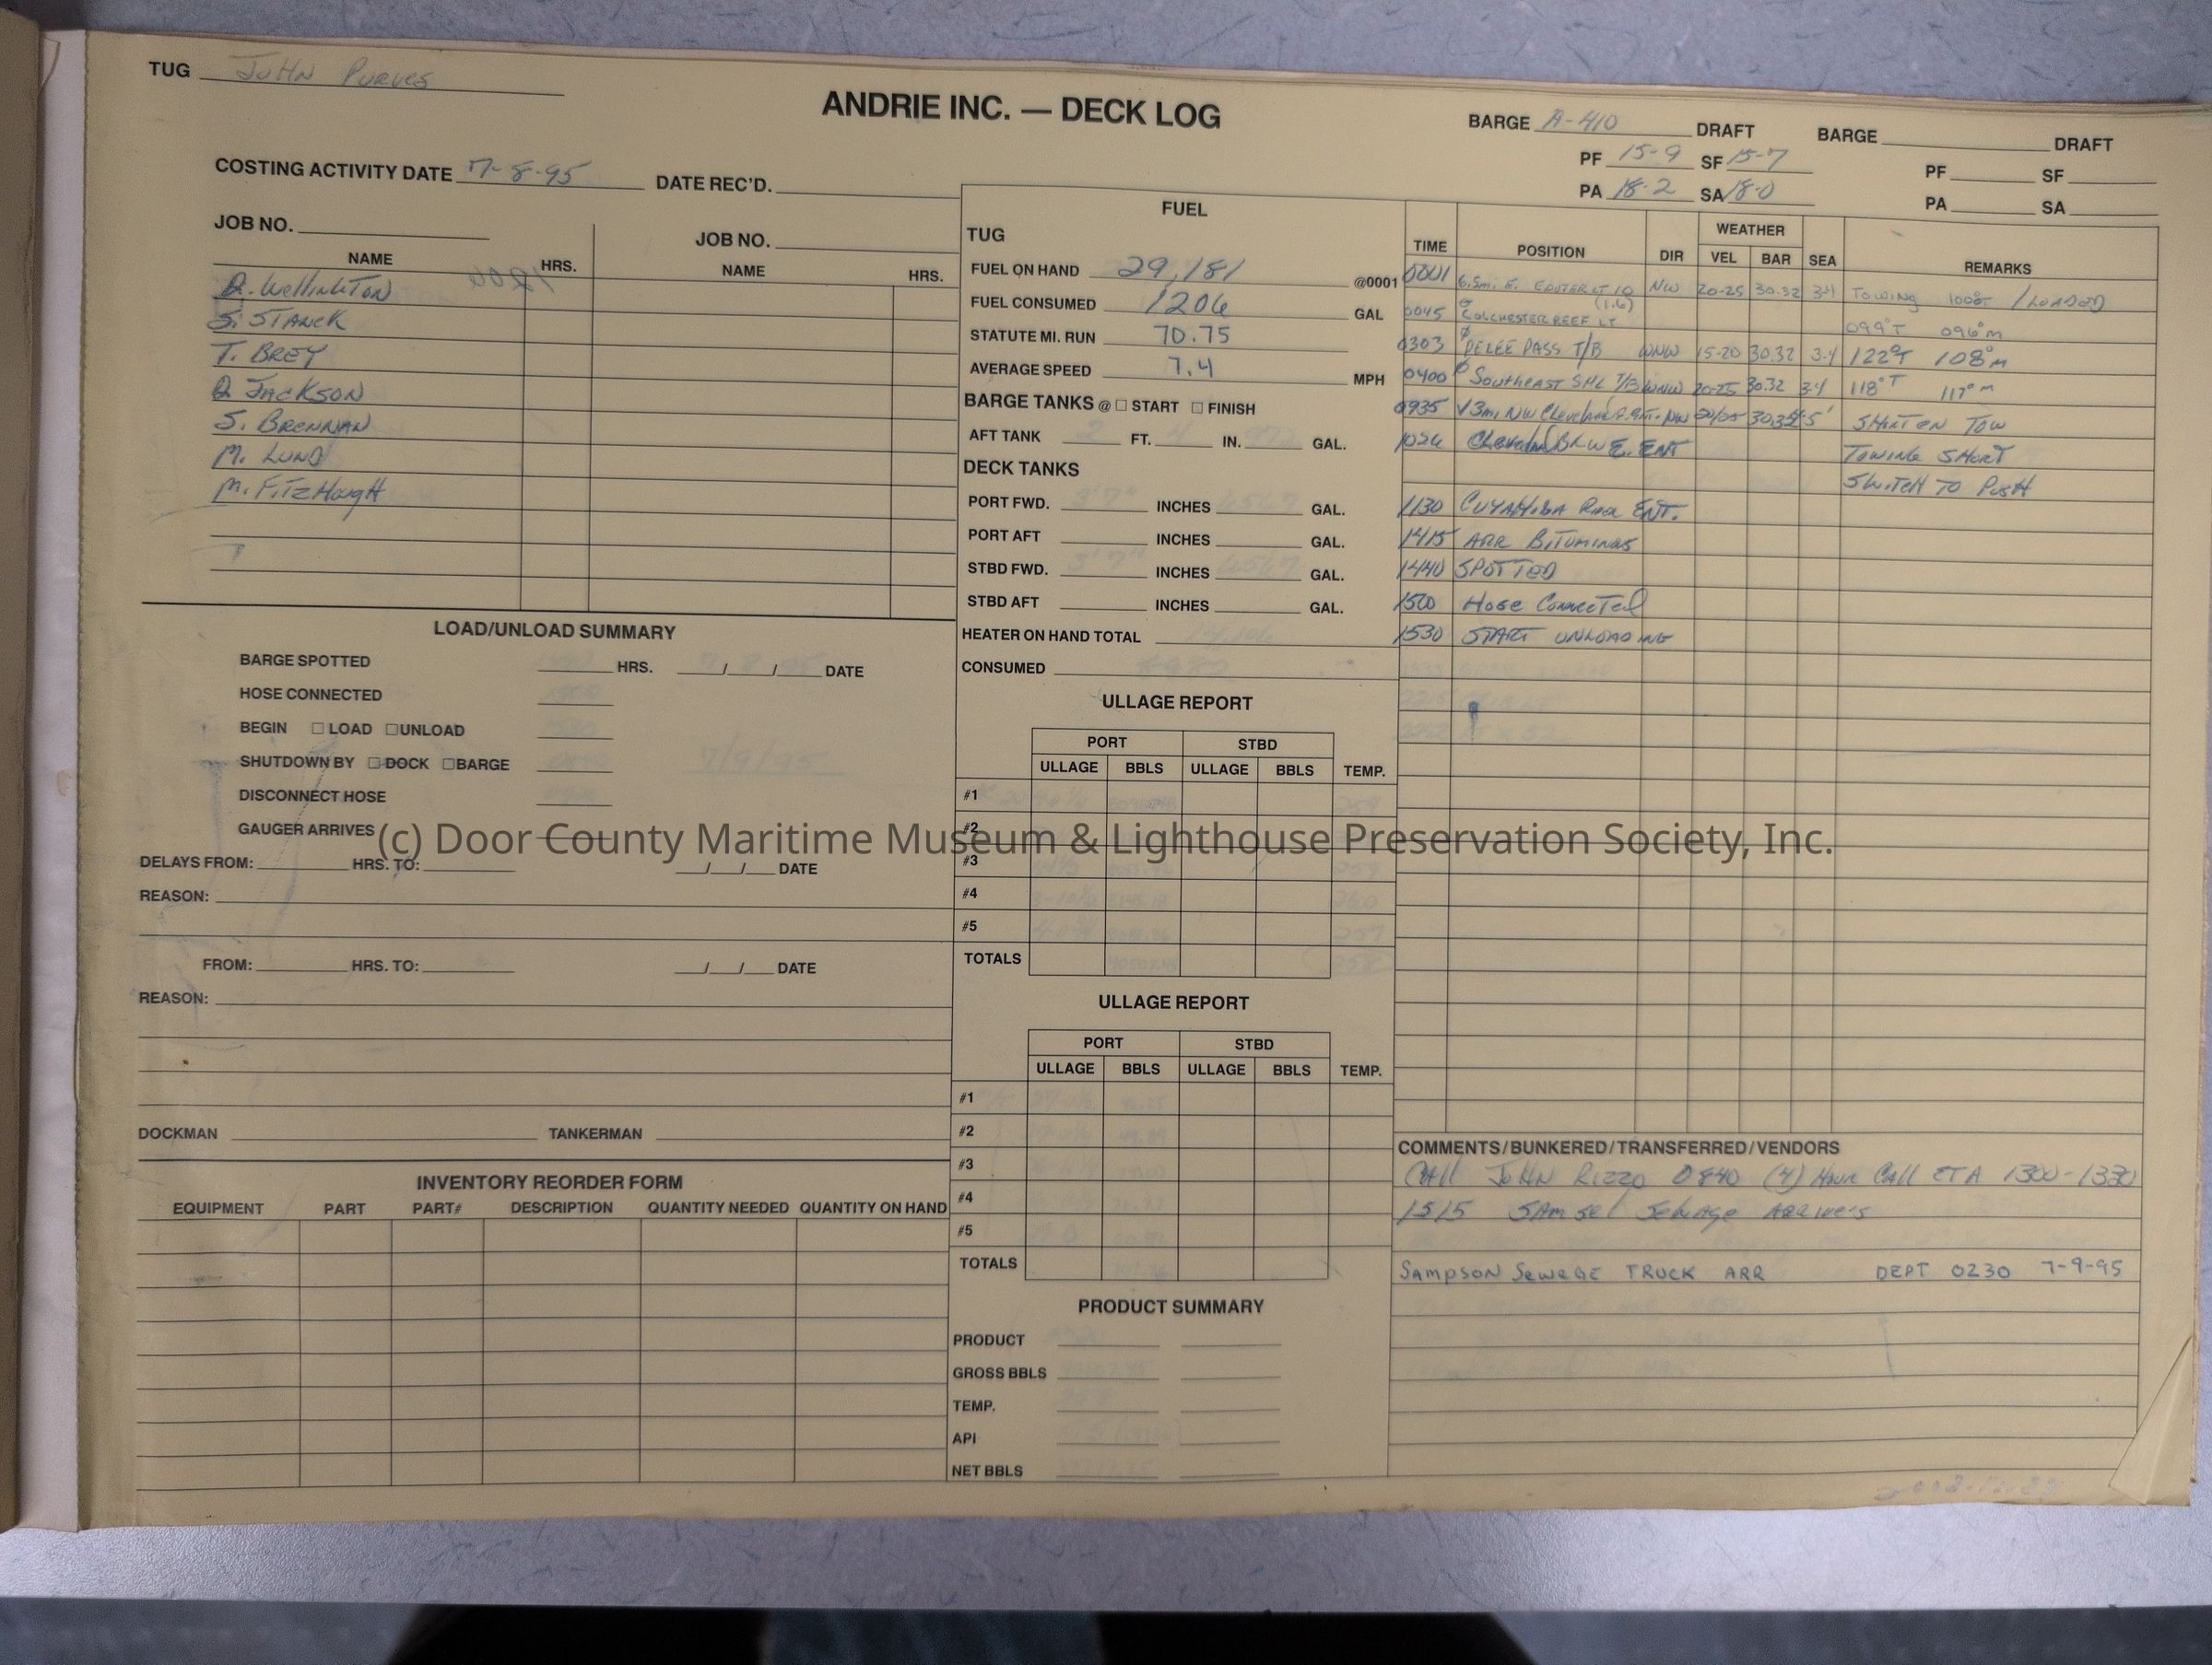 TUG John Purves
ANDRIE INC. — DECK LOG
BARGE A-410 DRAFT
BARGE DRAFT
PF 15-9 SF 15-7
PF SF
PA 18-2 SA 18-0
PA SA
COSTING ACTIVITY DATE 7-8-95 DATE REC'D.
JOB NO. JOB NO.
NAME HRS. NAME HRS.
D. Wellington
S. STANEK
T. BREY
D JACKSON
S. BRENNAN
M. LUND
M. FITZHough
LOAD/UNLOAD SUMMARY
BARGE SPOTTED HRS. / / DATE
HOSE CONNECTED
BEGIN ☐ LOAD ☐ UNLOAD
SHUTDOWN BY ☐ DOCK ☐ BARGE
7/9/95
DISCONNECT HOSE
GAUGER ARRIVES
DELAYS FROM: HRS. TO: / / DATE
REASON:
FROM: HRS. TO: / / DATE
REASON:
DOCKMAN TANKERMAN
INVENTORY REORDER FORM
EQUIPMENT PART PART# DESCRIPTION QUANTITY NEEDED QUANTITY ON HAND
FUEL
TUG
FUEL ON HAND 29,181 @0001
FUEL CONSUMED 1206 GAL
STATUTE MI. RUN 70.75
AVERAGE SPEED 7.4 MPH
BARGE TANKS @ ☐ START ☐ FINISH
AFT TANK FT. IN. GAL.
DECK TANKS
PORT FWD. INCHES GAL.
PORT AFT INCHES GAL.
STBD FWD. INCHES GAL.
STBD AFT INCHES GAL.
HEATER ON HAND TOTAL
CONSUMED
ULLAGE REPORT
PORT STBD
ULLAGE BBLS ULLAGE BBLS TEMP.
#1
#2
#3
#4
#5
TOTALS
ULLAGE REPORT
PORT STBD
ULLAGE BBLS ULLAGE BBLS TEMP.
#1
#2
#3
#4
#5
TOTALS
PRODUCT SUMMARY
PRODUCT
GROSS BBLS
TEMP.
API
NET BBLS
WEATHER
TIME POSITION DIR VEL BAR SEA REMARKS
0001 6.5mi. E. LT 10 NW 20-25 30.32 3-4 TOWING 100°T / LOADED
(1.6)
0045 COLCHESTER REEF LT 099°T 096°M
0303 PELEE PASS T/B WNW 15-20 30.32 3-4 122°T 108°M
0400 SOUTHEAST SHL T/B WNW 20-25 30.32 3-4 118°T 117°M
0935 3mi NW Cleveland NW 20/25 5' SHORTEN TOW
1026 Cleveland BKW E. ENT TOWING SHORT
SWITCH TO PUSH
1130 CUYAHOGA River ENT.
1415 ARR BITUMINOS
1440 SPOTTED
1500 Hose Connected
1530 START UNLOADING
COMMENTS/BUNKERED/TRANSFERRED/VENDORS
CAll JOHN RIZZO 0840 (4) Hour Call ETA 1300-1330
1515 SAMsel Sewage ARRives
SAMPSON SEWAGE TRUCK ARR DEPT 0230 7-9-95
(c) Door County Maritime Museum & Lighthouse Preservation Society, Inc.